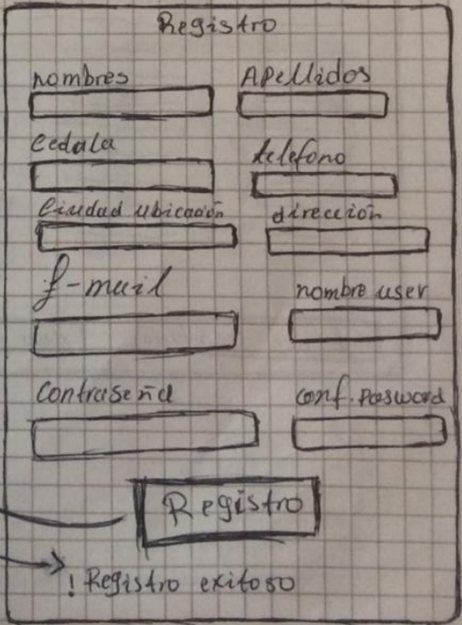 Registro
nombres Apellidos
Cedala telefono
Ciudad ubicación dirección
E-mail nombre user
Contraseña conf. password
Registro
! Registro exitoso